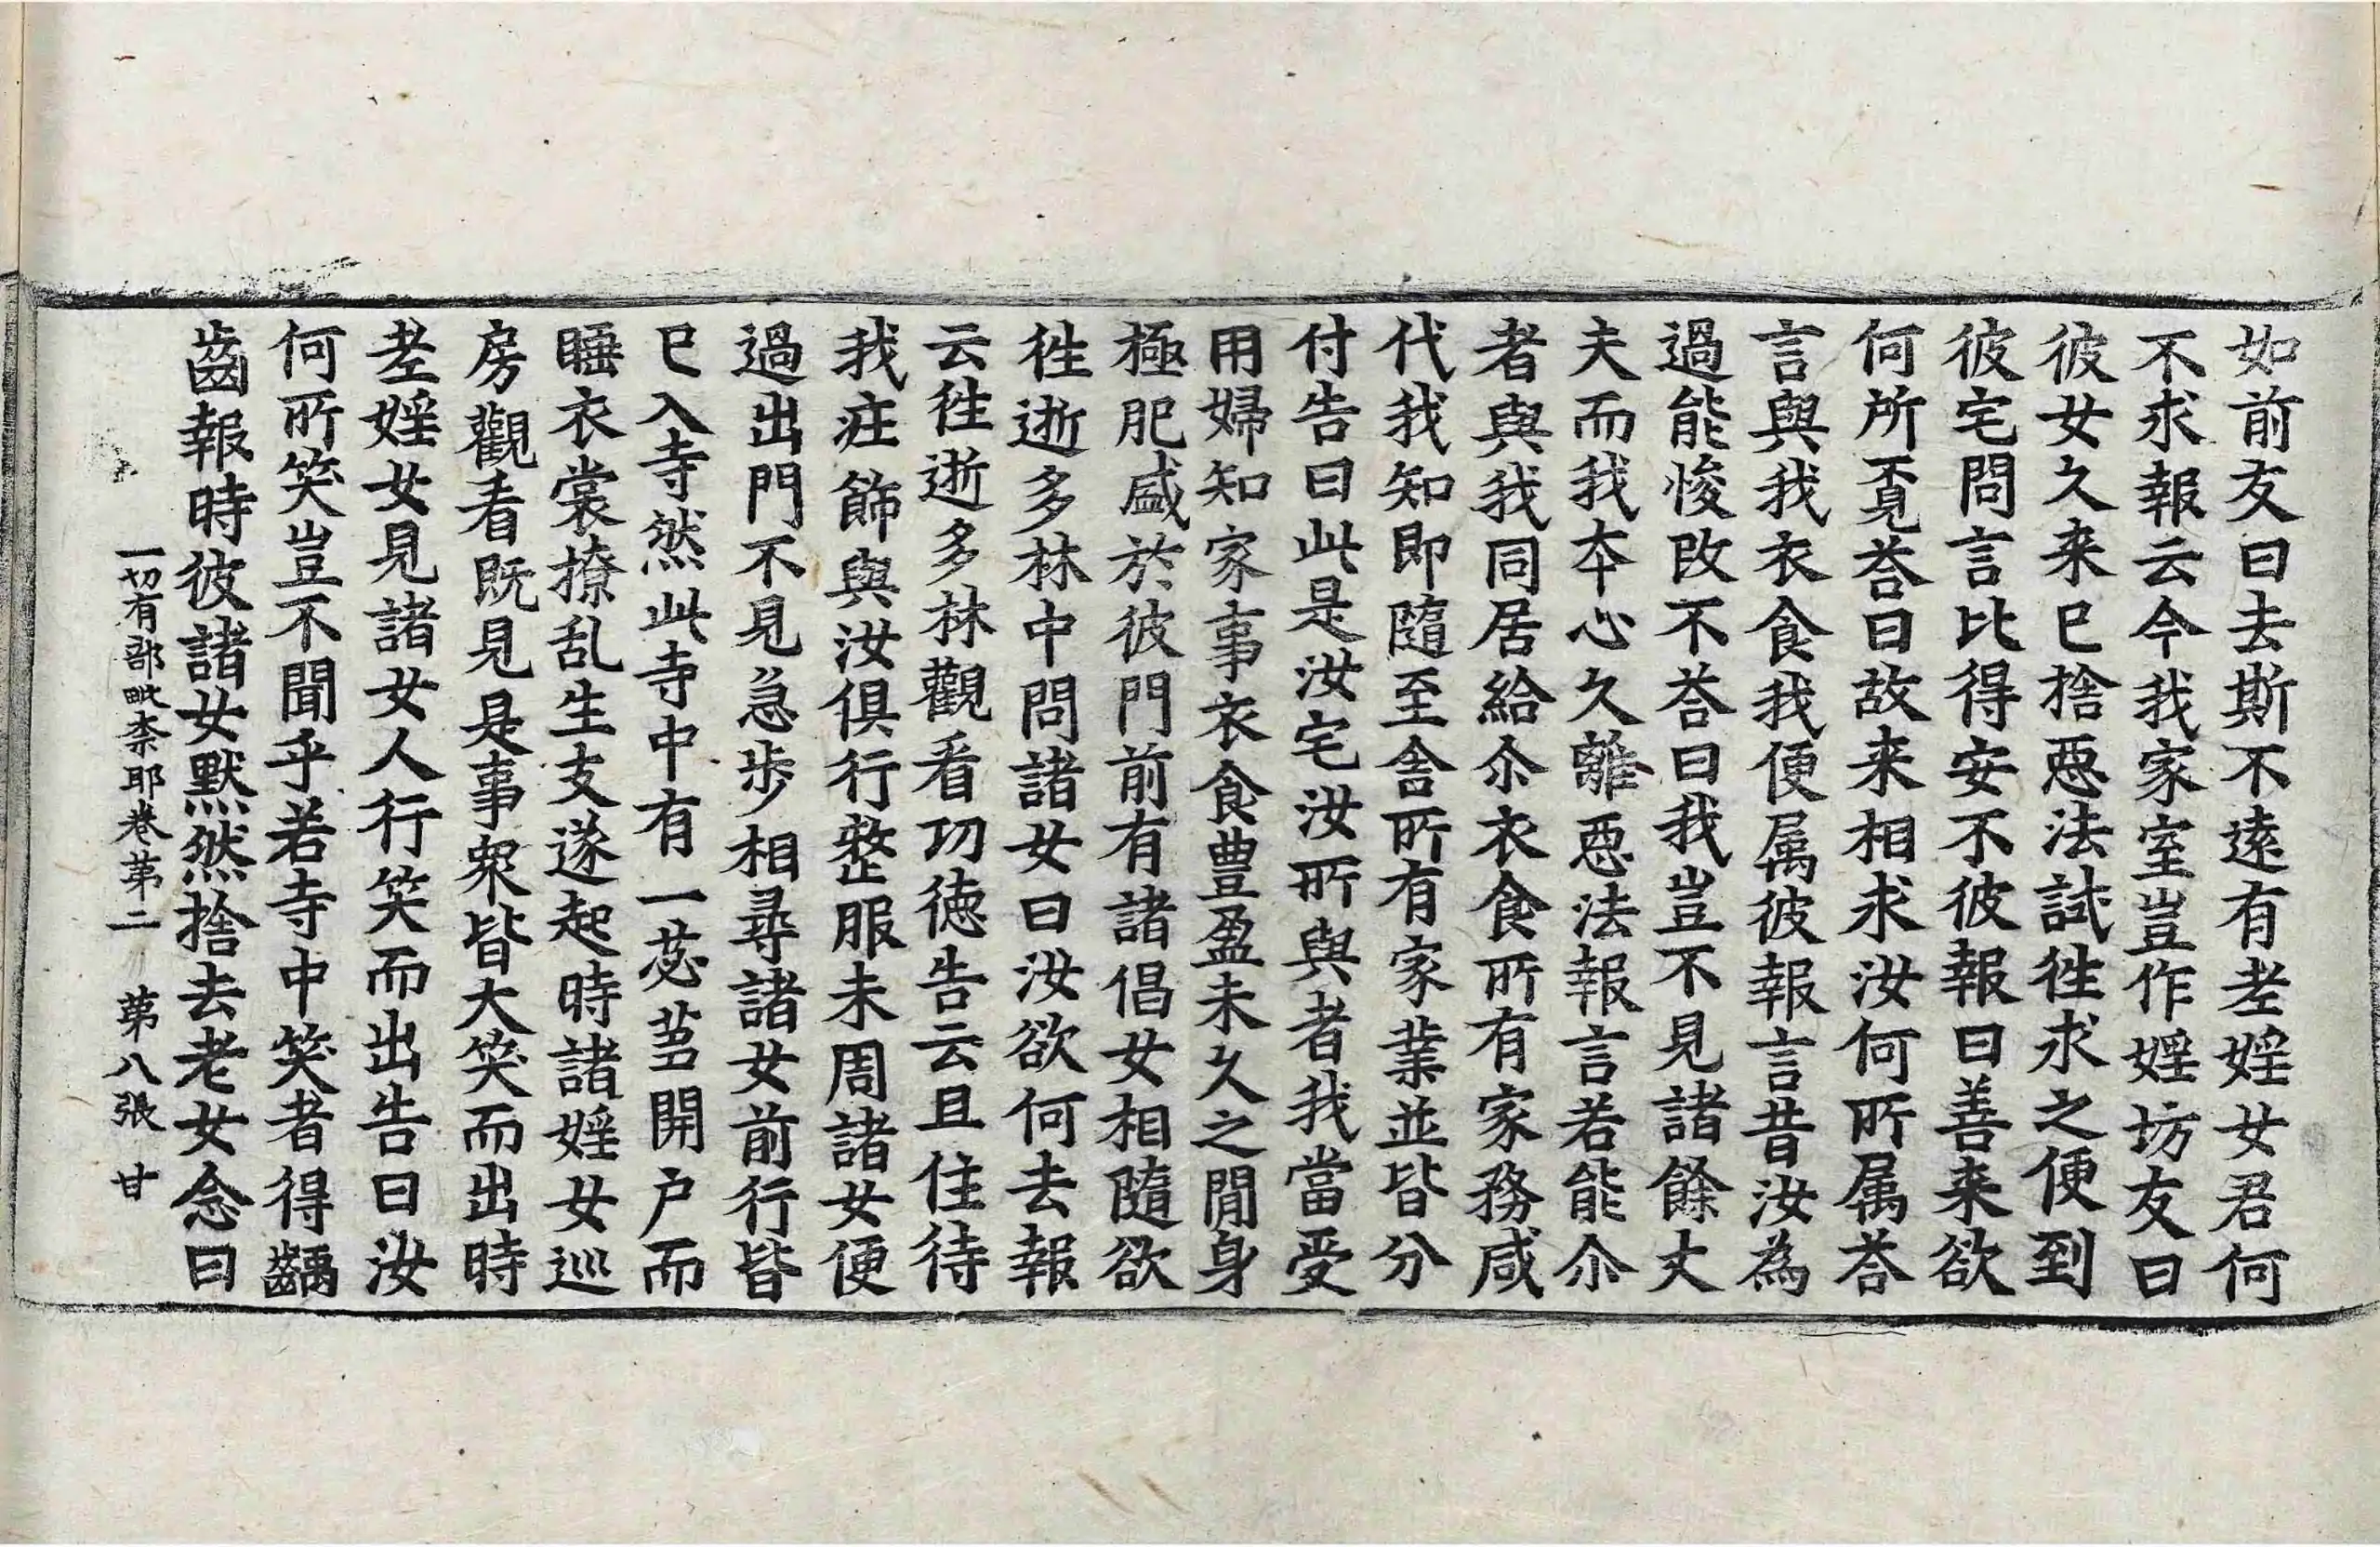 如前友曰去斯不遠有老婬女君何
不求報云今我家室豈作婬坊友曰
彼女久来已捨惡法試徃求之便到
彼宅問言比得安不彼報曰善来欲
何所覓荅曰故来相求汝何所属荅
言與我衣食我便属彼報言昔汝為
過能悛改不荅曰我豈不見諸餘丈
夫而我本心久離惡法報言若能尒
者與我同居給尒衣食所有家務咸
代我知即隨至舎所有家業並皆分
付告曰此是汝宅汝所與者我當受
用婦知家事衣食豊盈未久之閒身
極肥盛於彼門前有諸倡女相隨欲
徃逝多林中問諸女曰汝欲何去報
云徃逝多林觀看功徳告云且住待
我庄飾與汝俱行整服未周諸女便
過出門不見急步相尋諸女前行皆
已入寺然此寺中有一苾蒭開户而
睡衣裳撩乱生支遂起時諸婬女巡
房觀看既見是事衆皆大笑而出時
老婬女見諸女人行笑而出告曰汝
何所笑豈不聞乎若寺中笑者得齲
齒報時彼諸女默然捨去老女念曰
一切有部毗奈耶卷第二　第八張　甘